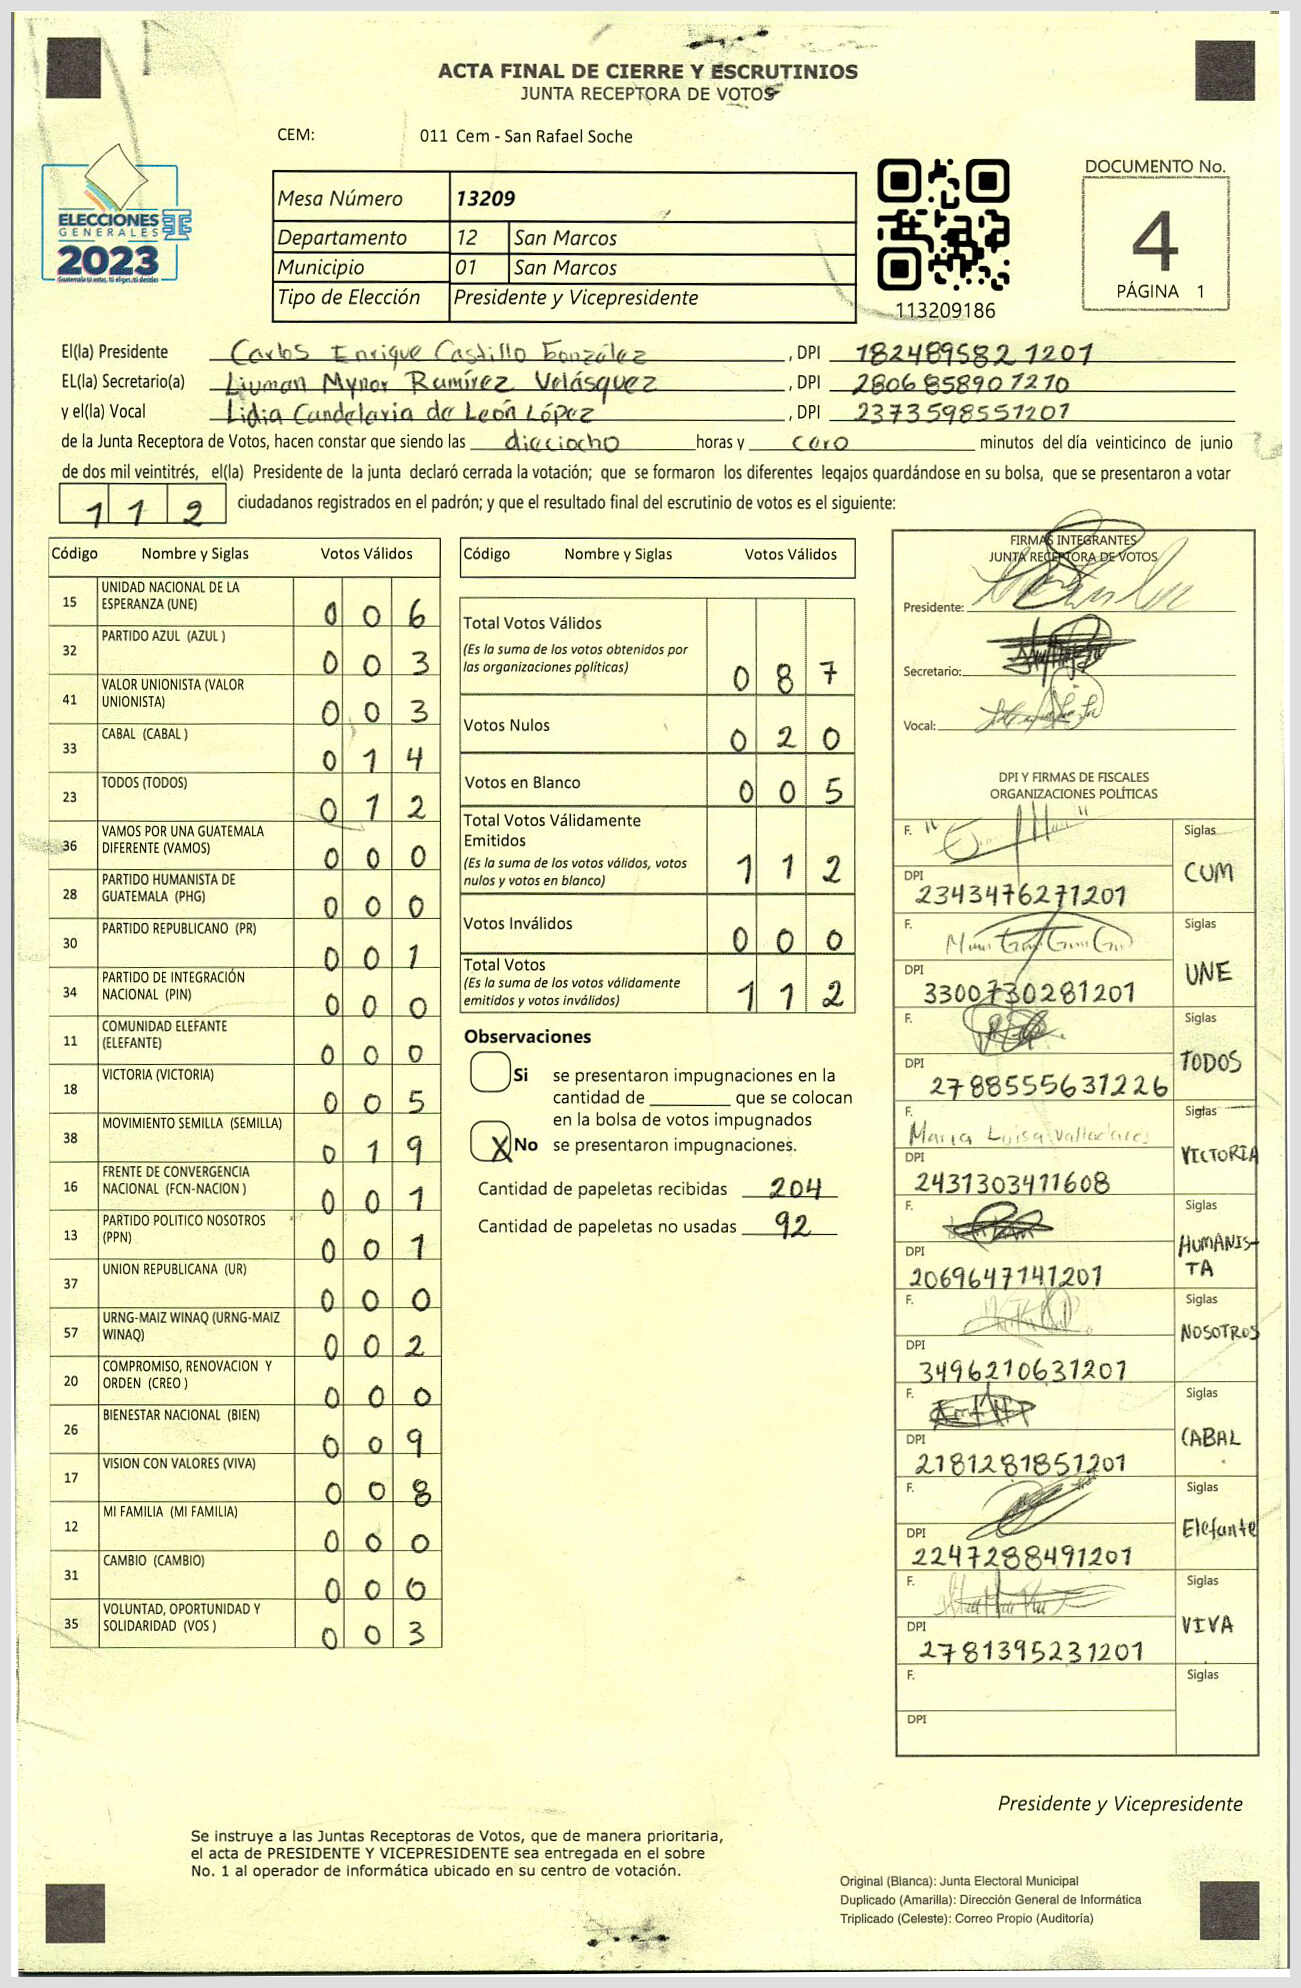 ACTA FINAL DE CIERRE Y ESCRUTINIOS
JUNTA RECEPTORA DE VOTOS
CEM: 011 Cem - San Rafael Soche
ELECCIONES
GENERALES
2023
Mesa Número 13209
Departamento 12 San Marcos
Municipio 01 San Marcos
Tipo de Elección Presidente y Vicepresidente
113209186
DOCUMENTO No.
4
PÁGINA 1
El(la) Presidente Carlos Enrique Castillo González, DPI 1824895821201
EL(la) Secretario(a) Liuman Mynor Ramírez Velásquez, DPI 2806858901210
y el(la) Vocal Lidia Candelaria de León López, DPI 2373598551201
de la Junta Receptora de Votos, hacen constar que siendo las dieciocho horas y cero minutos del día veinticinco de junio
de dos mil veintitrés, el(la) Presidente de la junta declaró cerrada la votación; que se formaron los diferentes legajos guardándose en su bolsa, que se presentaron a votar
112 ciudadanos registrados en el padrón; y que el resultado final del escrutinio de votos es el siguiente:
Código Nombre y Siglas Votos Válidos
15 UNIDAD NACIONAL DE LA ESPERANZA (UNE) 006
32 PARTIDO AZUL (AZUL ) 003
41 VALOR UNIONISTA (VALOR UNIONISTA) 003
33 CABAL (CABAL ) 014
23 TODOS (TODOS) 012
36 VAMOS POR UNA GUATEMALA DIFERENTE (VAMOS) 000
28 PARTIDO HUMANISTA DE GUATEMALA (PHG) 000
30 PARTIDO REPUBLICANO (PR) 001
34 PARTIDO DE INTEGRACIÓN NACIONAL (PIN) 000
11 COMUNIDAD ELEFANTE (ELEFANTE) 000
18 VICTORIA (VICTORIA) 005
38 MOVIMIENTO SEMILLA (SEMILLA) 019
16 FRENTE DE CONVERGENCIA NACIONAL (FCN-NACION ) 001
13 PARTIDO POLITICO NOSOTROS (PPN) 001
37 UNION REPUBLICANA (UR) 000
57 URNG-MAIZ WINAQ (URNG-MAIZ WINAQ) 002
20 COMPROMISO, RENOVACION Y ORDEN (CREO ) 000
26 BIENESTAR NACIONAL (BIEN) 009
17 VISION CON VALORES (VIVA) 008
12 MI FAMILIA (MI FAMILIA) 000
31 CAMBIO (CAMBIO) 000
35 VOLUNTAD, OPORTUNIDAD Y SOLIDARIDAD (VOS ) 003
Código Nombre y Siglas Votos Válidos
Total Votos Válidos 087
(Es la suma de los votos obtenidos por
las organizaciones políticas)
Votos Nulos 020
Votos en Blanco 005
Total Votos Válidamente
Emitidos 112
(Es la suma de los votos válidos, votos
nulos y votos en blanco)
Votos Inválidos 000
Total Votos 112
(Es la suma de los votos válidamente
emitidos y votos inválidos)
Observaciones
Si se presentaron impugnaciones en la
cantidad de ________ que se colocan
en la bolsa de votos impugnados
X No se presentaron impugnaciones.
Cantidad de papeletas recibidas 204
Cantidad de papeletas no usadas 92
FIRMAS INTEGRANTES
JUNTA RECEPTORA DE VOTOS
Presidente:
Secretario:
Vocal:
DPI Y FIRMAS DE FISCALES
ORGANIZACIONES POLÍTICAS
F. Siglas CUM
DPI 2343476271201
F. Siglas UNE
DPI 3300730281201
F. Siglas TODOS
DPI 2788555631226
F. Maria Luisa Valladares Siglas VICTORIA
DPI 2431303411608
F. Siglas HUMANIS-
TA
DPI 2069647141201
F. Siglas NOSOTROS
DPI 3496210631201
F. Siglas CABAL
DPI 2181281851201
F. Siglas Elefante
DPI 2247288491201
F. Siglas VIVA
DPI 2781395231201
F. Siglas
DPI
Presidente y Vicepresidente
Se instruye a las Juntas Receptoras de Votos, que de manera prioritaria,
el acta de PRESIDENTE Y VICEPRESIDENTE sea entregada en el sobre
No. 1 al operador de informática ubicado en su centro de votación.
Original (Blanca): Junta Electoral Municipal
Duplicado (Amarilla): Dirección General de Informática
Triplicado (Celeste): Correo Propio (Auditoría)